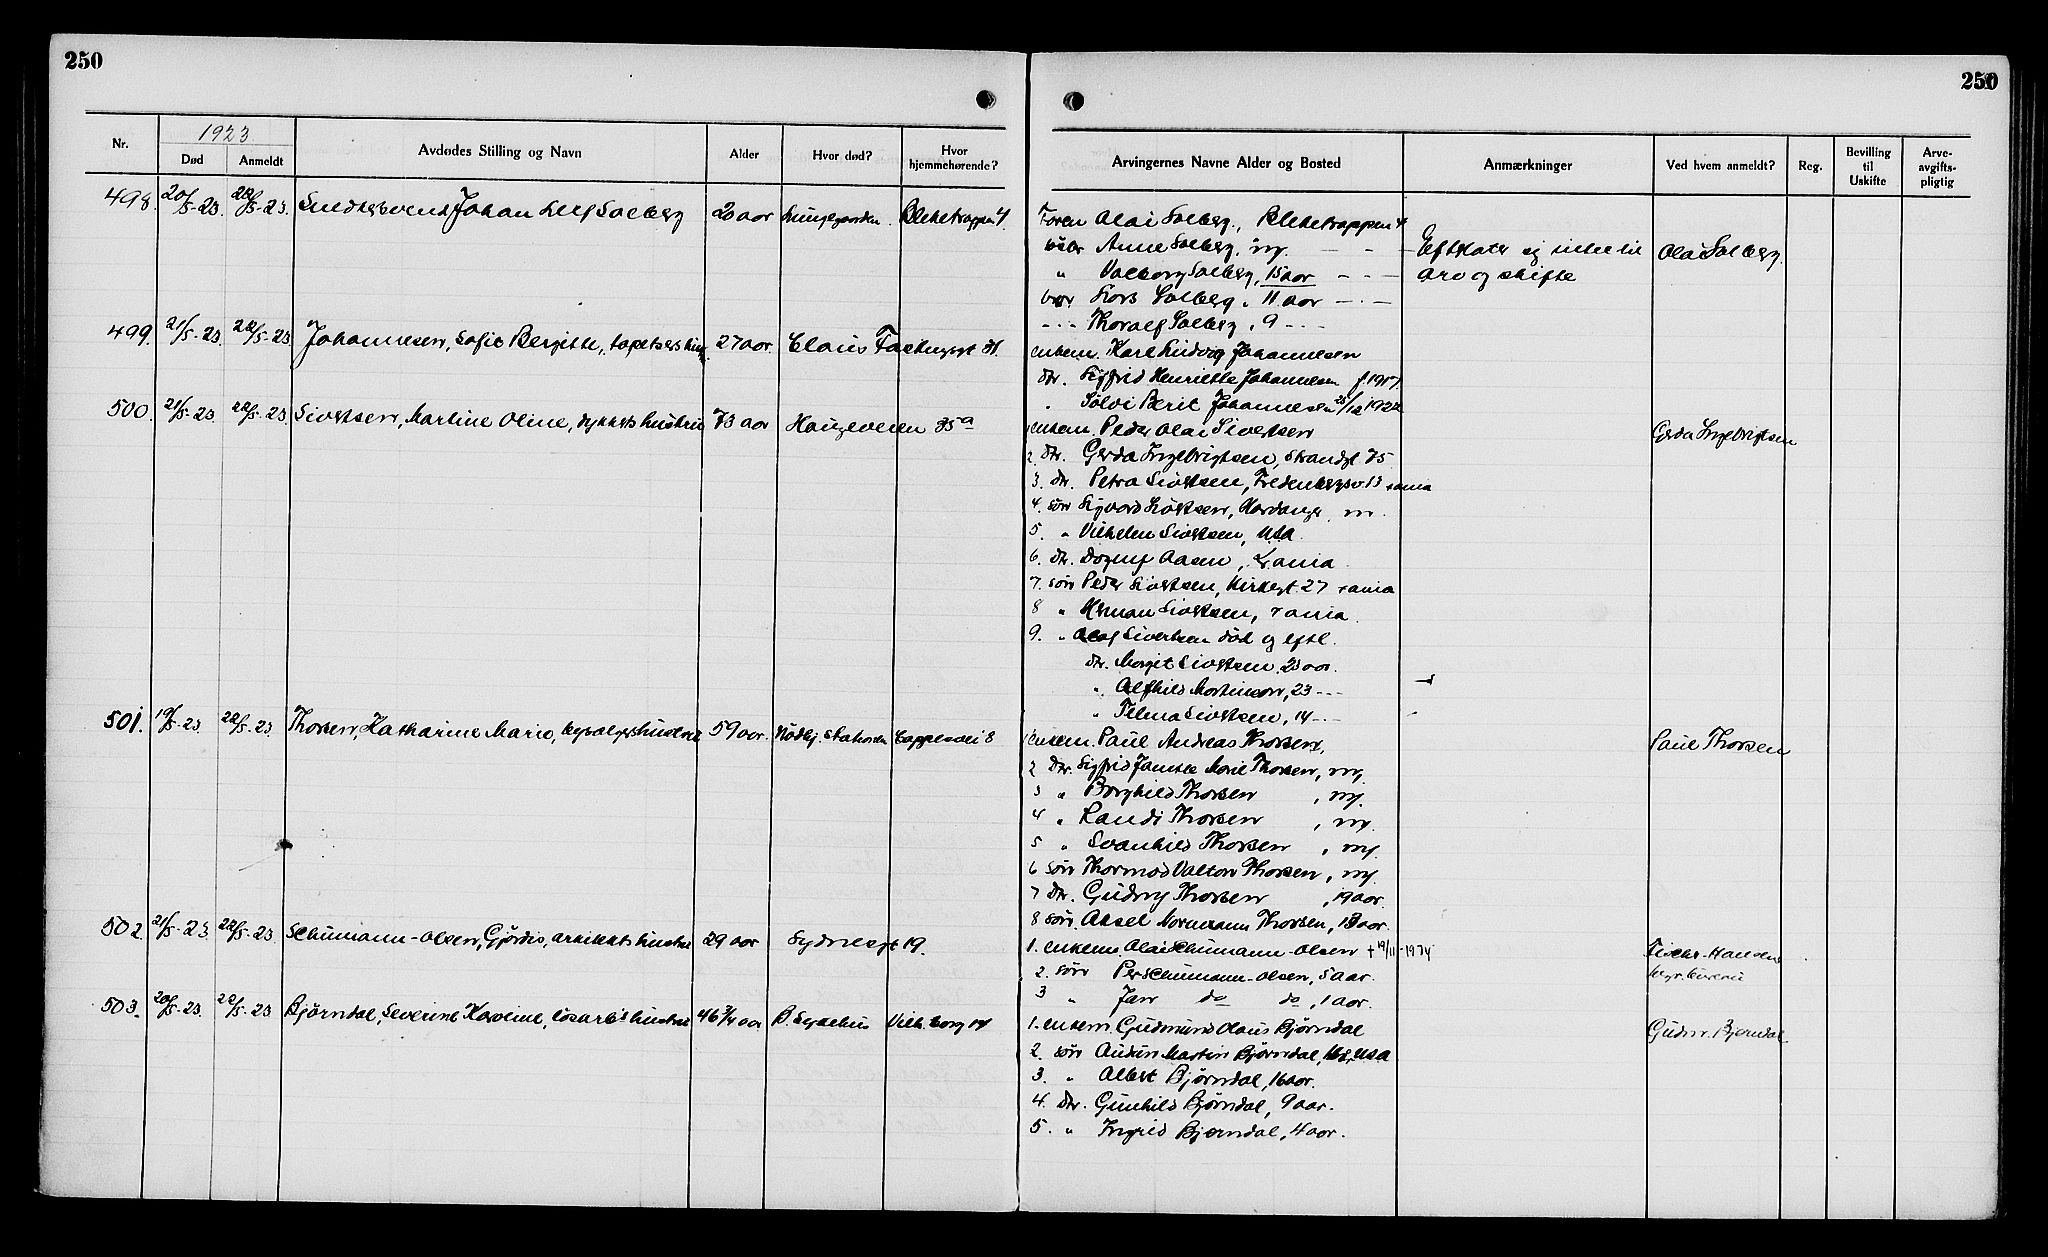 250
250
1923
Nr.
Død
Anmeldt
Avdødes Stilling og Navn
Alder
Hvor død?
Hvor hjemmehørende?
Arvingernes Navne Alder og Bosted
Anmærkninger
Ved hvem anmeldt?
Reg.
Bevilling til Uskifte
Arve-avgifts-pligtig
498. 20/5-23. 22/5-23. Johan Leif Solberg 20 aar Lungegaarden. Bleketrappen 4
Olai Solberg., Bleketrappen 4
Anne Solberg, my. — -
Efterlater sig intet til Olai Solberg.
" Valborg Solberg, 15 aar - - -
arv og skifte
bror Lars Solberg, 11 aar - . -
- . - Thoralf Solberg, 9 - . -
499. 21/5-23. 22/5-23 Johannesen, Sofie Bergitte, tapetsers 27 aar. Claus 31.
enkem. Karl Ludvig Johannesen
Dtr. Sigfrid Henriette Johannesen f. 1917.
" Sølvi Berit Johannesen 1922
500. 21/5-23 22/5-23. Sivertsen, Martine Oline, hustru 73 aar Haugeveien 35a
enkem. Peder Olai Sivertsen
Gerda Ingebrigtsen
2. Dtr. Gerda Ingebrigtsen, Strandgt 75
3. Dtr. Petra Sivertsen,
4. søn Sigvard Sivertsen, Hardanger, m.
5. " Vilhelm Sivertsen, USA.
6. Dtr. Dagny Aasen,
7. søn Peder Sivertsen, Kirkegt. 27
8 " Herman Sivertsen,
9. " Olaf Sivertsen død og eftl.
Dtr. Margit Sivertsen, 23 aar.
" Alfhild Martinsen, 23 - - -
" Telma Sivertsen, 14 - . -
501. 19/5-23 22/5-23. Thorsen, Katharine Marie, hustru 59 aar. Stationen Cappesvei 8
1 enkem. Paul Andreas Thorsen,
Paul Thorsen
2 Dtr. Sigfrid Marie Thorsen, my.
3 " Borghild Thorsen , my.
4 " Randi Thorsen , my.
5 " Svanhild Thorsen , my.
6 søn Thormod Valton Thorsen, my.
7 Dtr. Gudny Thorsen , 19 aar.
8 søn Aksel Normann Thorsen, 13 aar.
502. 21/5-23. 22/5-23 Schumann-Olsen, Gjørdis, arkitekts hustru 29 aar Sydnesgt 19.
1. enkem. Olai Schumann-Olsen + 19/11-1974
Fischer-Hansens
begr. bureau
2. søn Per Schumann-Olsen, 5 aar.
3 " Jan do do, 1 aar.
503. 20/5-23. 22/5-23 Bjørndal, Severine Karoline, løsarb's hustru 46 3/4 aar B. Sykehus Vilh. borg 14
1. enkem. Gudmund Olaus Bjørndal
Gudm. Bjørndal
2. søn Audun Martin Bjørndal, 18, USA
3. " Albert Bjørndal, 16 aar.
4. Dtr. Gunhild Bjørndal, 9 aar.
5. " Ingrid Bjørndal, 4 aar.